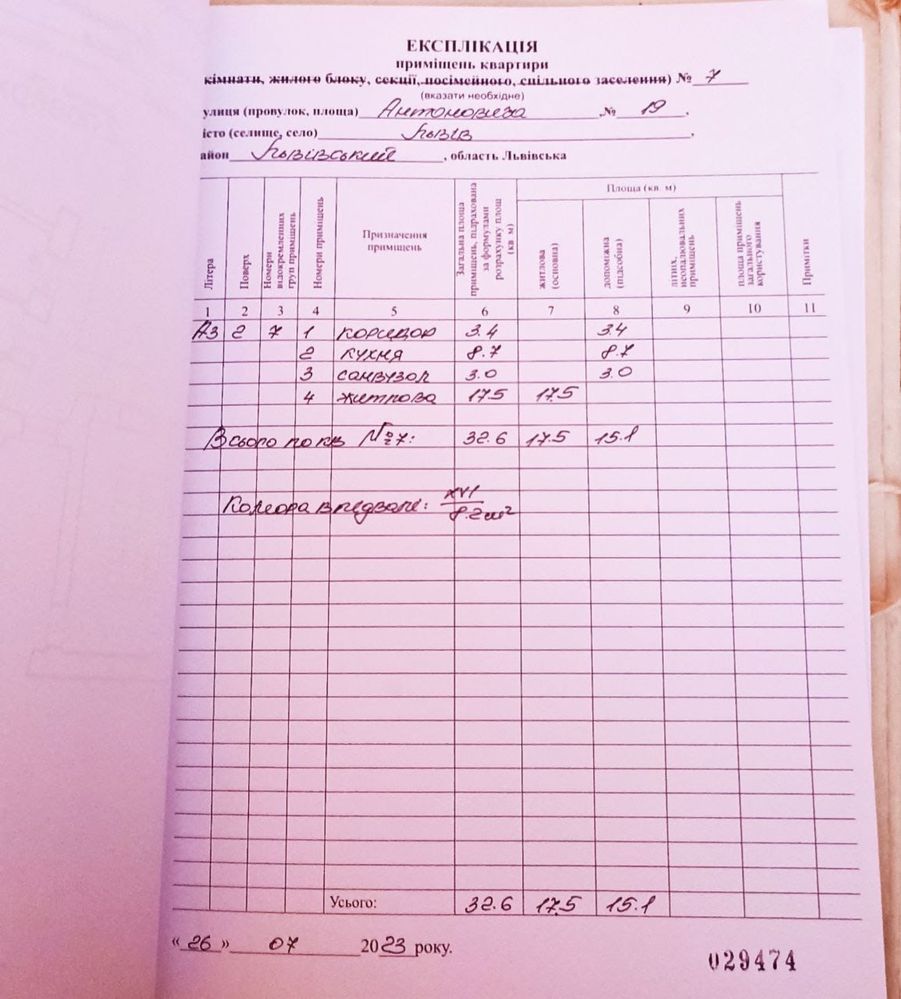 ЕКСПЛІКАЦІЯ
приміщень квартири
кімнати, жилого блоку, секції, посімейного, спільного заселення) № 7
(вказати необхідне)
улиця (провулок, площа) Антоновича № 19 .
істо (селище, село) Львів ,
айон Львівський , область Львівська
Літера
Поверх
Номери відокремлених груп приміщень
Номери приміщень
Призначення приміщень
Загальна площа приміщень, підрахована за формулами розрахунку площ (кв. м)
Площа (кв. м)
житлова (основна)
допоміжна (підсобна)
літніх, неопалювальних приміщень
площа приміщень загального користування
Примітки
1 2 3 4 5 6 7 8 9 10 11
А3 2 7 1 коридор 3.4 3.4
2 кухня 8.7 8.7
3 санвузол 3.0 3.0
4 житлова 17.5 17.5
Всього по кв №7: 32.6 17.5 15.1
Комора в підвалі: XVI
8.2 м²
Усього: 32.6 17.5 15.1
« 26 » 07 2023 року.
029474